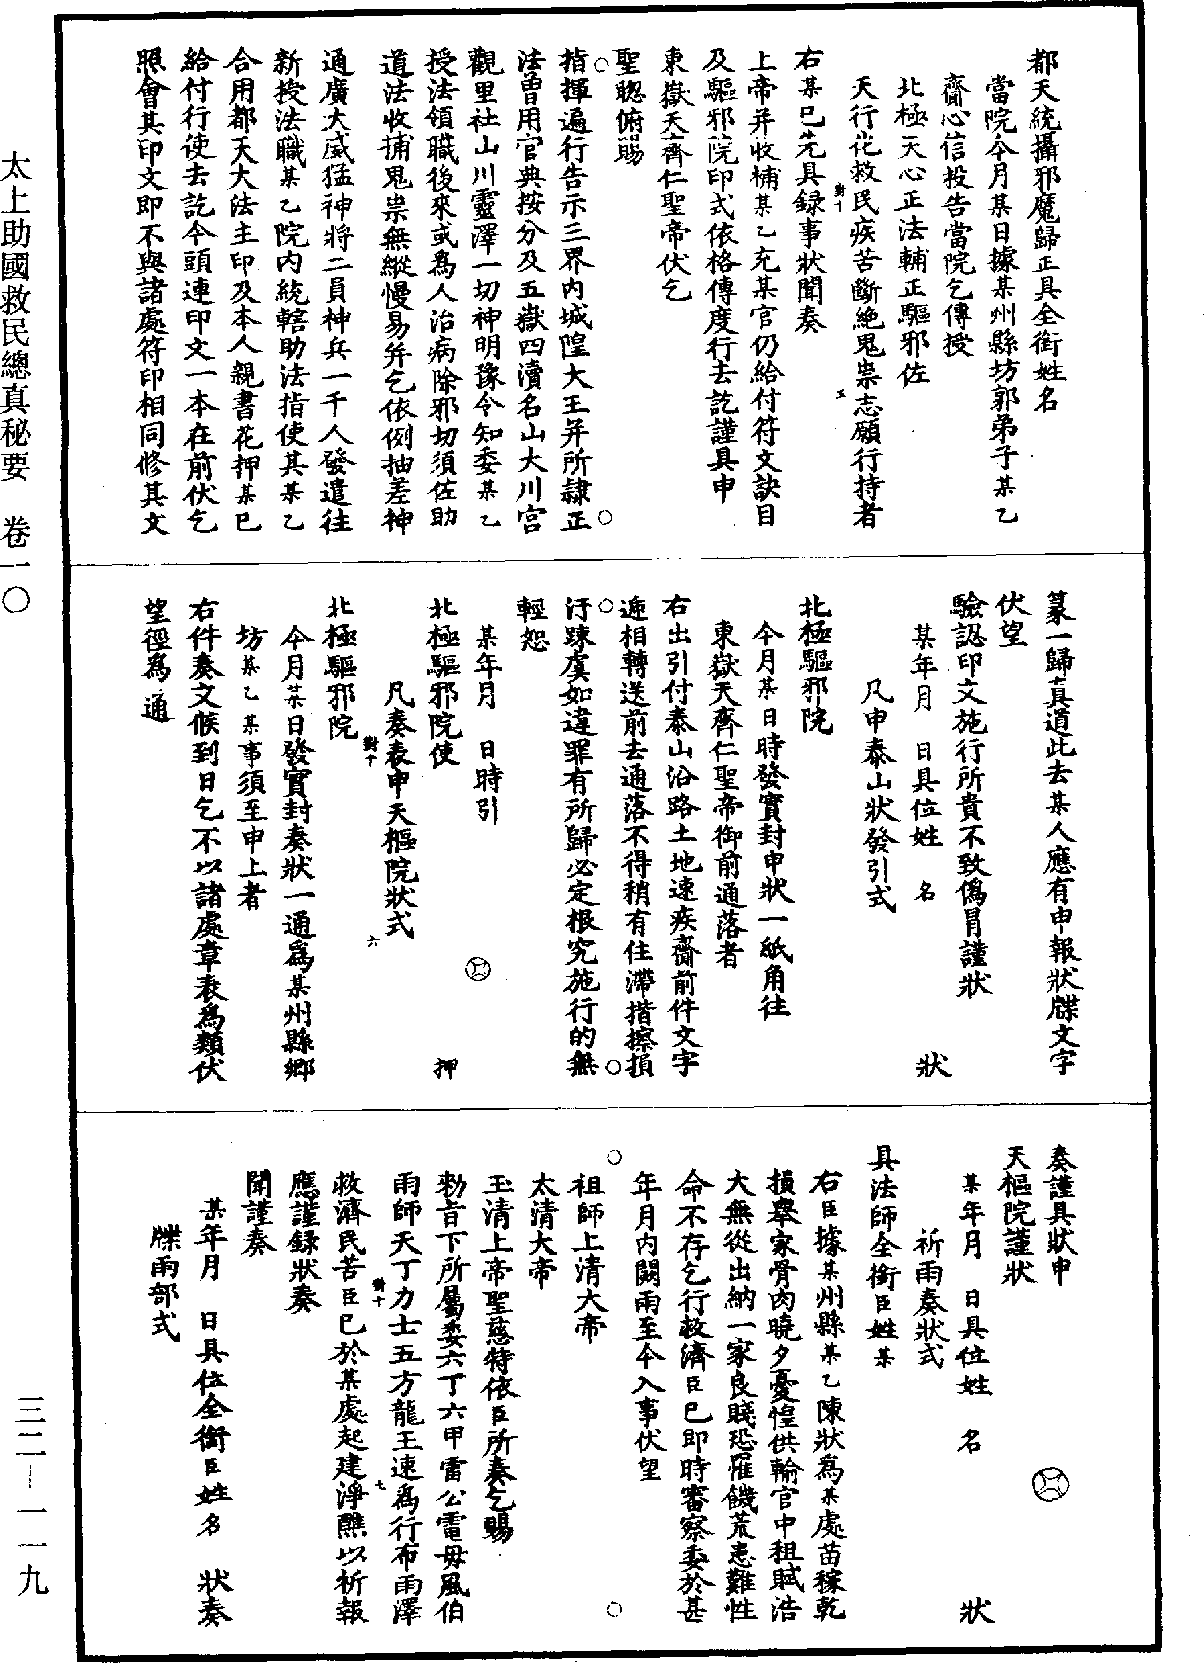 都天統攝邪魔歸正具全銜姓名
當院今月某日據某州縣坊郭弟子某乙
齎心信投告當院乞傳授
北極天心正法輔正驅邪佐
天行化救民疾苦斷絕鬼祟志願行持者
對十 五
右某已先具録事狀聞奏
上帝并收補某乙充某官仍給付符文訣目
及驅邪院印式依格傳度行去訖謹具申
東嶽天齊仁聖帝伏乞
聖聰俯賜
指揮遍行告示三界内城隍大王并所隷正
法曾用官典按分及五嶽四瀆名山大川宮
觀里社山川靈澤一切神明豫令知委某乙
授法領職後來或為人治病除邪切須佐助
道法收捕鬼祟無縱慢易并乞依例抽差神
通廣大威猛神將二員神兵一千人發遣往
新授法職某乙院内統轄助法指使其某乙
合用都天大法主印及本人親書花押某已
給付行使去訖今頭連印文一本在前伏乞
照會其印文即不與諸處符印相同修其文
篆一歸真道此去某人應有申報狀牒文字
伏望
驗認印文施行所貴不致偽冒謹狀
某年月 日具位姓 名 狀
凡申泰山狀發引式
北極驅邪院
今月某日時發實封申狀一紙角往
東嶽天齊仁聖帝御前通落者
右出引付泰山沿路土地速疾齎前件文字
遞相轉送前去通落不得稍有住滯揩擦損
汙踈虞如違罪有所歸必定根究施行的無
輕恕
某年月 日時引
北極驅邪院使 押
凡奏表申天樞院狀式
對十 六
北極驅邪院
今月某日發實封奏狀一通爲某州縣鄉
坊某乙某事須至申上者
右件奏文候到日乞不以諸處章表為類伏
望徑為通
奏謹具狀申
天樞院謹狀
某年月 日具位姓 名 狀
祈雨奏狀式
具法師全銜臣姓某
右臣據某州縣某乙陳狀為某處苗稼乾
損舉家骨肉曉夕憂惶供輸官中租賦浩
大無從出納一家良賤恐罹饑荒患難性
命不存乞行救濟臣已即時審察委於甚
年月内闕雨至今入事伏望
祖師上清大帝
太清大帝
玉清上帝聖慈特依臣所奏乞賜
勑旨下所屬委六丁六甲雷公電母風伯
雨師天丁力士五方龍王速爲行布雨澤
對十 七
救濟民苦臣已於某處起建淨醮以祈報
應謹録狀奏
聞謹奏
某年月 日具位全銜臣姓名 狀奏
牒雨部式
太上助國救民總真秘要 卷一〇
三二－一一九